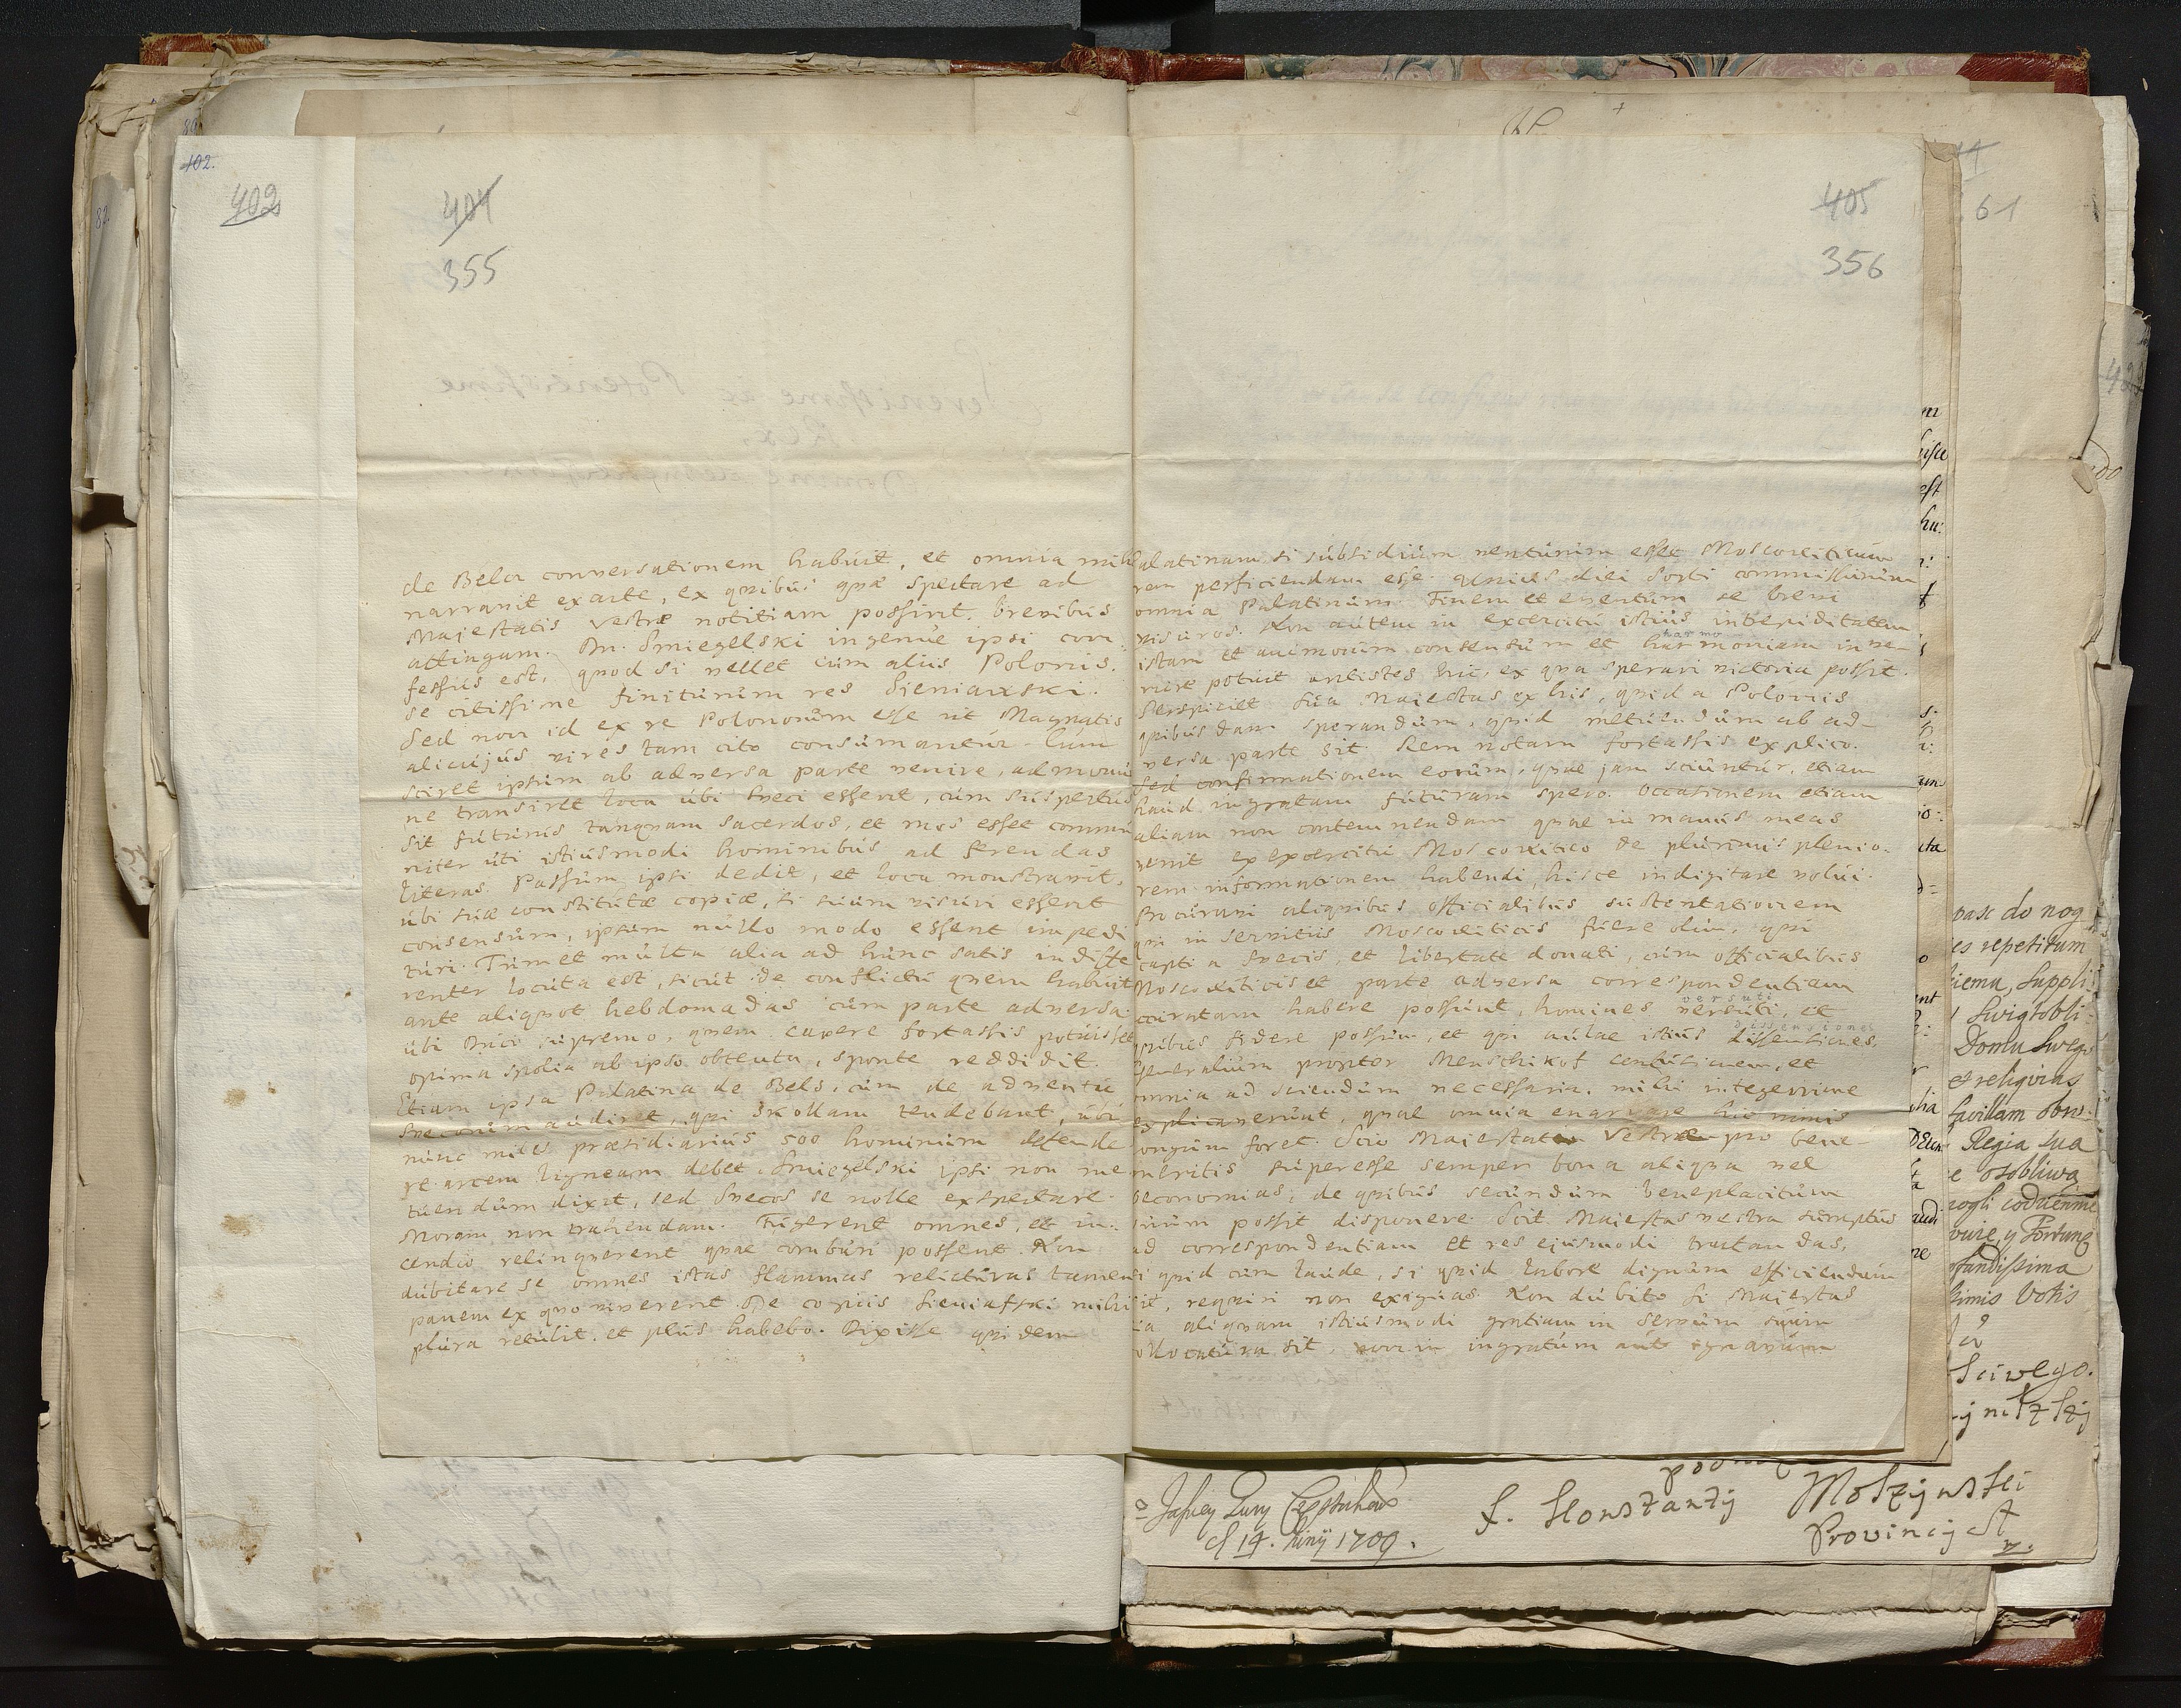 402.
402
401
355
de Belcz conversationem habuit, et omnia mihi
narravit exacte, ex quibus quæ spectare ad
Majestatis Vestræ notitiam possint, brevibus
attingam. Dn. Smiegelski ingenue ipsi con
fessus est, quod si vellet cum aliis Polonis.
se citissime finiturum res Sieniawski.
Sed non id ex re Polonorum esse ut Magnatis
alicujus vires tam cito consumantur. Cum
sciret ipsum ab adversa parte venire, admonuit
ne transiret loca ubi Sveci essent, cum suspectus
sit futurus tanquam sacerdos, et mos esset commu
niter uti istiusmodi hominibus ad ferendas
literas. Passum ipsi dedit, et loca monstravit,
ubi suæ constitutæ copiæ, si suum visuri essent
consensum, ipsum nullo modo essent impedi
turi. Tum et multa alia ad hunc satis indiffe
renter locuta est, sicut de conflictu quem habuit
ante aliquot hebdomadas cum parte adversa
ubi Duci supremo, quem capere fortassis potuisset
opima spolia ab ipso obtenta, sponte reddidit.
Etiam ipsa Palatina de Bels, cum de adventu
Svecorum audiret, qui Skollam tendebant, ubi
nunc miles præsidiarius 500 hominum defende
re arcem ligneam debet. Smiegelski ipsi non me
tuendum dixit, sed Svecos se nolle exspectare.
Moram non trahendam. Fugerent omnes, et in
cendio relinquerent quae comburi possent. Non
dubitare se omnes istas flammas relicturas tamen
panem ex quo viverent. De copiis Sieniafski mihi
plura retulit. et plus habebo. Dixisse quidem
405
356
alatinam si subsidium venturum esset Moscoviticum
rem perficiendam esse. unius diei sorti commissurum
omnia Palatinum. Finem et eventum se brevi
visuros. Non autem in exercitu istius intrepiditatem
harmo
istam et animorum consensum et harmoniam inve-
nire potuit antistes hic, ex qua sperari victoria possit.
Perspiciet Sua Majestas ex his, quid a Polonis
quibusdam sperandum, quid metuendum ab ad-
versa parte sit. Rem notam fortassis explico.
Sed confirmationem eorum, quae jam sciuntur, etiam
haud ingratam futuram spero. Occasionem etiam
aliam non contemnendam quae in manus meas
venit ex exercitu Moscovitico de plurimis plenio-
rem informationem habendi, hisce indigitare volui.
Procuravi aliquibus officialibus sustentationem
qui in servitiis Moscoviticis fuere olim, qui
capti a Svecis, et libertate donati, cum officialibus
Moscoviticis et parte adversa correspondentiam
versuti
ccuratam habere possunt, homines versuti, et
dissensiones
quibus fidere possum, et qui aulae istius dissensiones,
Generalium propter Menschikof confusionem, et
omnia ad sciendum necessaria, mihi integerrime
explicaverunt, quae omnia enarrare hic nimis
longum foret. Scio Majestatem Vestræ pro bene-
meritis superesse semper bona aliqua vel
oeconomias, de quibus secundum beneplacitum
suum possit disponere. Scit Majestas vestra sumptus
ad correspondentiam et res ejusmodi tractandas,
si quid cum laude, si quid labore dignum efficiendum
sit, requiri non exiguas. Non dubito si Majestas
ia aliquam istiusmodi gratiam in servum suum
ollocatura sit, non in ingratum aut ignavum
61
pasc do nog
es repetitum
Swigtobli-
et religvias
favillam obru-
Regia sua
e osobliwą
ofundissima
kimis Votis
Sciwego.
d 14. Juny 1709.
f. Konstanty Moszynski
Provincyst